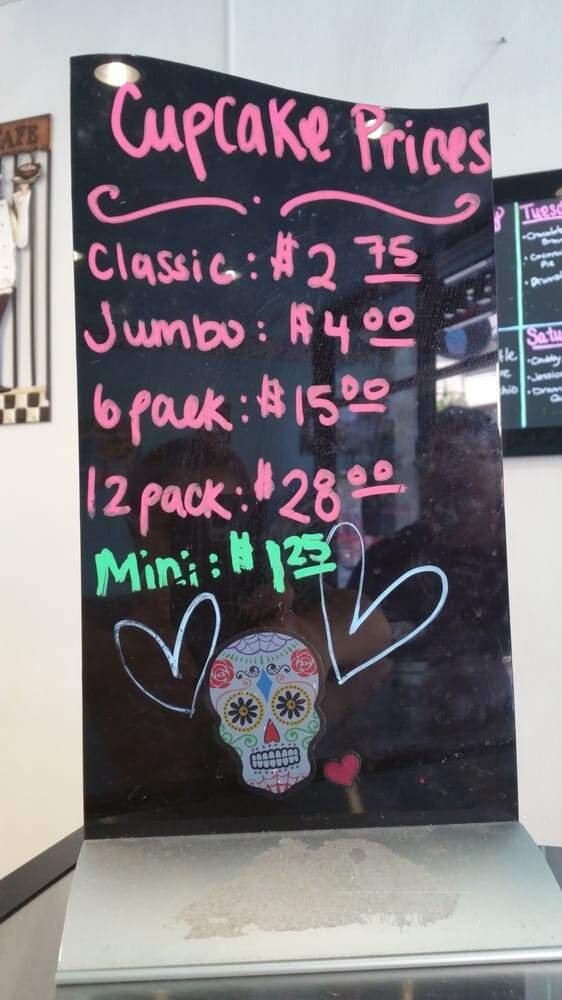 Cupcake Prices
Classic: $2 75
Jumbo: $4 00
6 pack: $15 00
12 pack: $28 00
Mini: $1 25
AFE
Tuesd
Pie
Satu